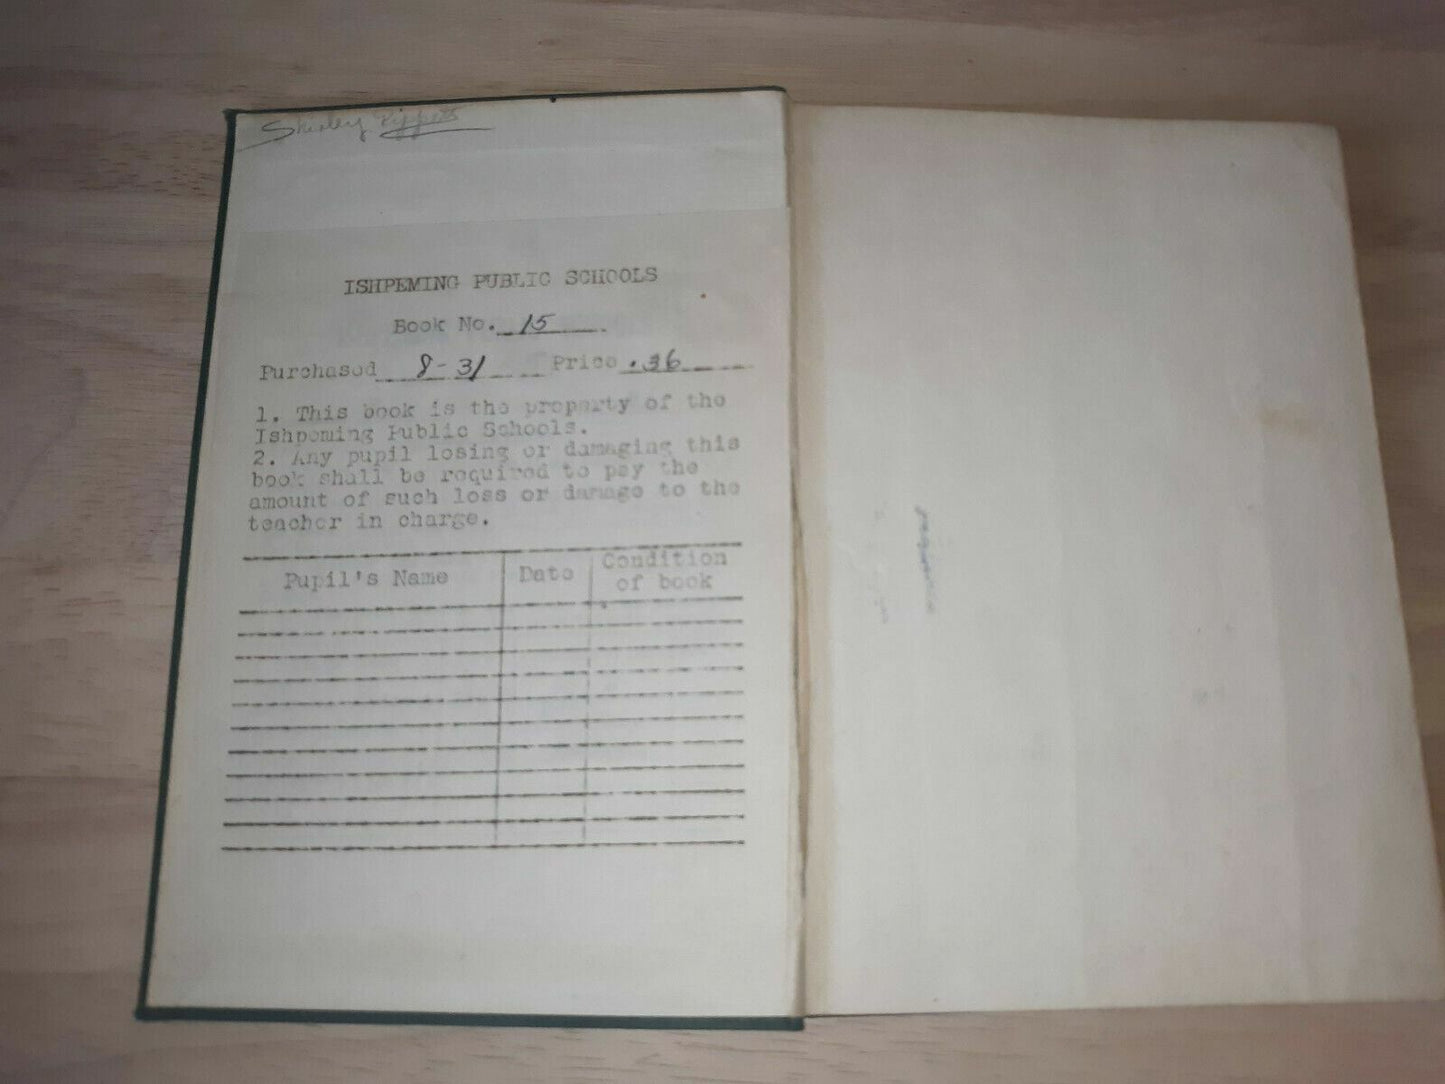 Shirley
ISHPEMING PUBLIC SCHOOLS
Book No. 15
Purchased 8-31 Price .36
1. This book is the property of the
Ishpeming Public Schools.
2. Any pupil losing or damaging this
book shall be required to pay the
amount of such loss or damage to the
teacher in charge.
Pupil's Name Date Condition
of book